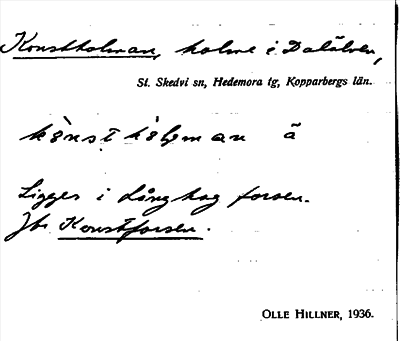 Konstholman, holme i Dalälven,
St. Skedvi sn, Hedemora tg, Kopparbergs län.
ä
Ligger i Långhag forsen.
Jfr Konstforsen.
OLLE HILLNER, 1936.